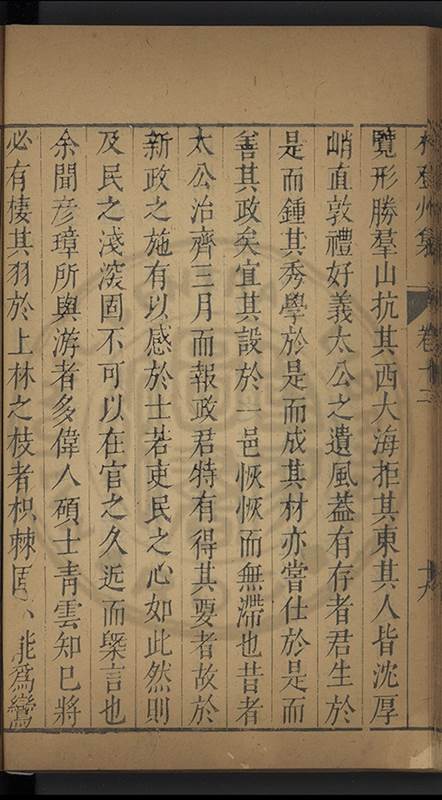 林登州集 卷十三 十六
覽形勝羣山抗其西大海拒其東其人皆沈厚
峭直敦禮好義太公之遺風蓋有存者君生於
是而鍾其秀學於是而成其材亦嘗仕於是而
善其政矣宜其設於一邑恢恢而無滯也昔者
太公治齊三月而報政君特有得其要者故於
新政之施有以感於士若吏民之心如此然則
及民之淺深固不可以在官之久近而槩言也
余聞彦璋所與游者多偉人碩士青雲知已將
必有棲其羽於上林之枝者枳棘固不能爲鸞